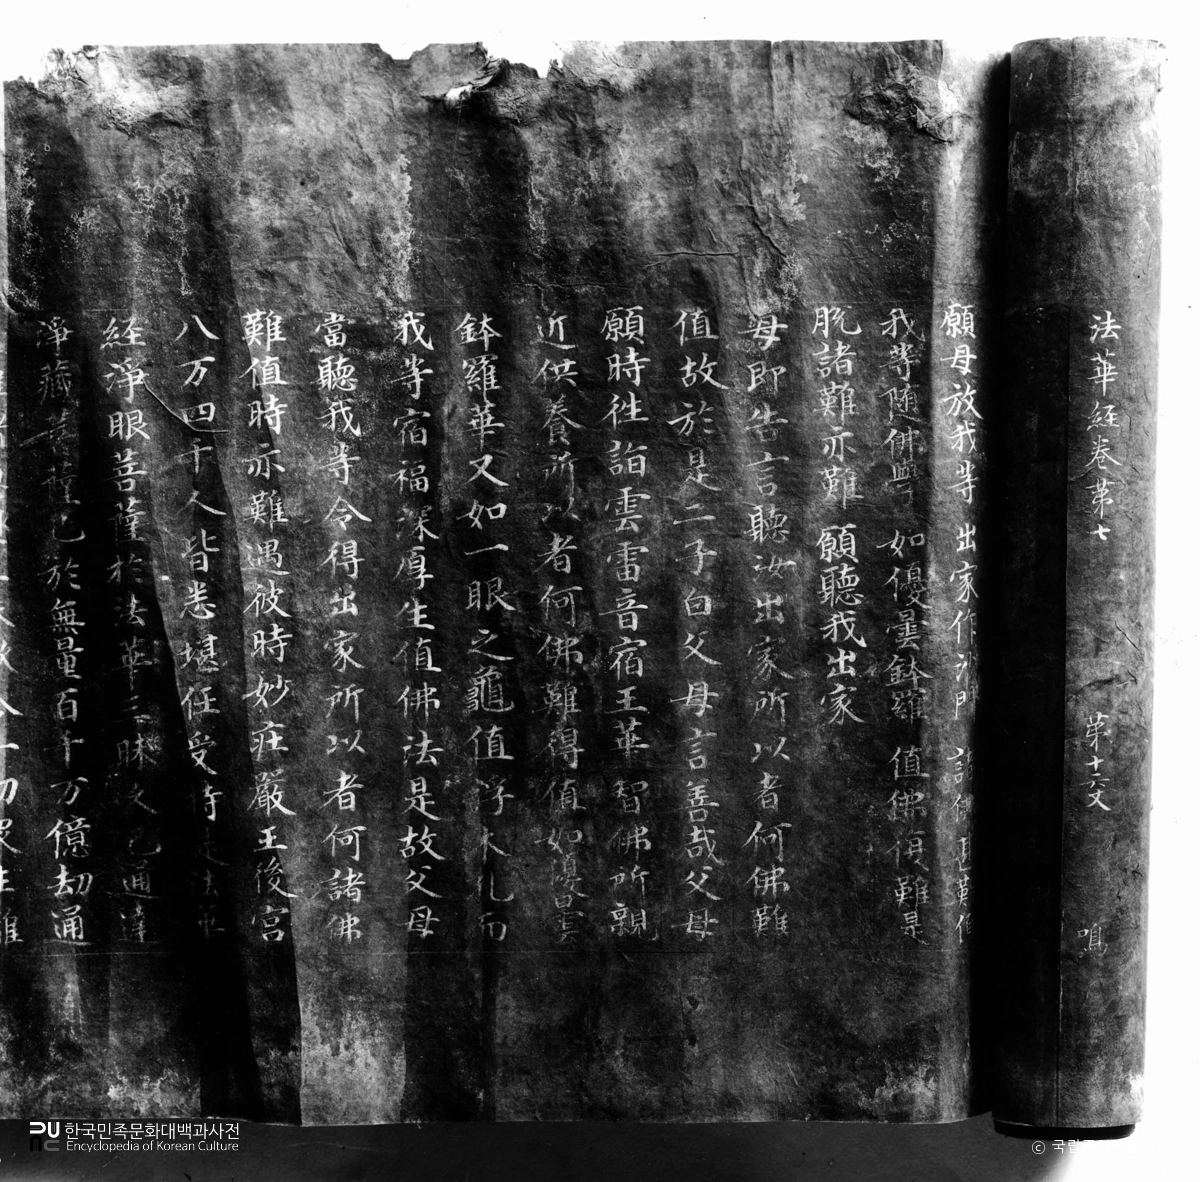 法華経巻第七 第十六丈 鳴
願母放我等 出家作沙門 諸佛甚難値
我等随佛學 如優曇鉢羅 値佛復難是
脱諸難亦難 願聽我出家
母即告言聽汝出家所以者何佛難
値故於是二子白父母言善哉父母
願時徃詣雲雷音宿王華智佛所親
近供養所以者何佛難得値如優曇
鉢羅華又如一眼之龜値浮木孔而
我等宿福深厚生値佛法是故父母
當聽我等令得出家所以者何諸佛
難値時亦難遇彼時妙庄嚴王後宮
八万四千人皆悉堪任受持是法華
経淨眼菩薩於法華三昧久已通達
淨蔵菩薩已於無量百千万億劫通
한국민족문화대백과사전
Encyclopedia of Korean Culture